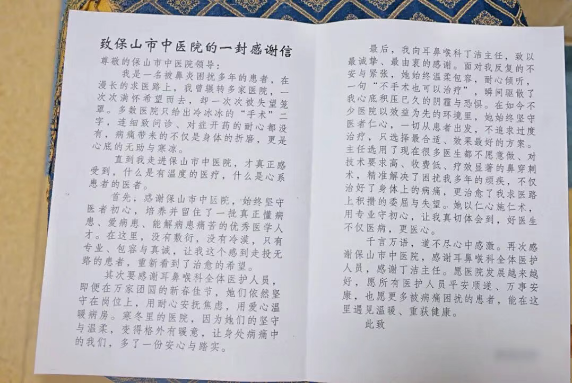 致保山市中医院的一封感谢信
尊敬的保山市中医院领导:
我是一名被鼻炎困扰多年的患者,在
漫长的求医路上,我曾辗转多家医院,一
次次满怀希望而去,却一次次被失望笼
罩。多数医院只给出冷冰冰的“手术”二
字,连细致问诊、对症开药的耐心都没
有,病痛带来的不仅是身体的折磨,更是
心底的无助与寒凉。
直到我走进保山市中医院,才真正感
受到,什么是有温度的医疗,什么是心系
患者的医者。
首先,感谢保山市中医院,始终坚守
医者初心,培养并留住了一批真正懂病
患、爱病患、能解病患痛苦的优秀医学人
才。在这里,没有敷衍,没有冷漠,只有
专业、包容与真诚,让我这个感到走投无
路的患者,重新看到了治愈的希望。
其次要感谢耳鼻喉科全体医护人员,
即便在万家团圆的新春佳节,她们依然坚
守在岗位上,用耐心安抚焦虑,用爱心温
暖病房。寒冬里的医院,因为她们的坚守
与温柔,变得格外有暖意,让身处病痛中
的我们,多了一份安心与踏实。
最后,我向耳鼻喉科了洁主任,致以
最诚挚、最由衷的感谢。面对我反复的不
安与紧张,她始终温柔包容,耐心倾听,
一句“不手术也可以治疗”,瞬间驱散了
我心底积压已久的阴霾与恐惧。在如今不
少医院以效益为先的环境里,她始终坚守
医者仁心,一切从患者出发,不追求过度
治疗,只选择最合适、效果最好的方案。
主任选用了现在很多医生都不愿意做、对
技术要求高、收费低、疗效显著的鼻穿刺
术,精准解决了困扰我多年的顽疾,不仅
治好了身体上的病痛,更治愈了我求医路
上积攒的委屈与失望。她以仁心施仁术,
用专业守初心,让我真切体会到,好医生
不仅医病,更医心。
千言万语,道不尽心中感激。再次感
谢保山市中医院,感谢耳鼻喉科全体医护
人员,感谢了洁主任。愿医院发展越来越
好,愿所有医护人员平安顺遂、万事安
康,也愿更多被病痛困扰的患者,能在这
里遇见温暖、重获健康。
此致